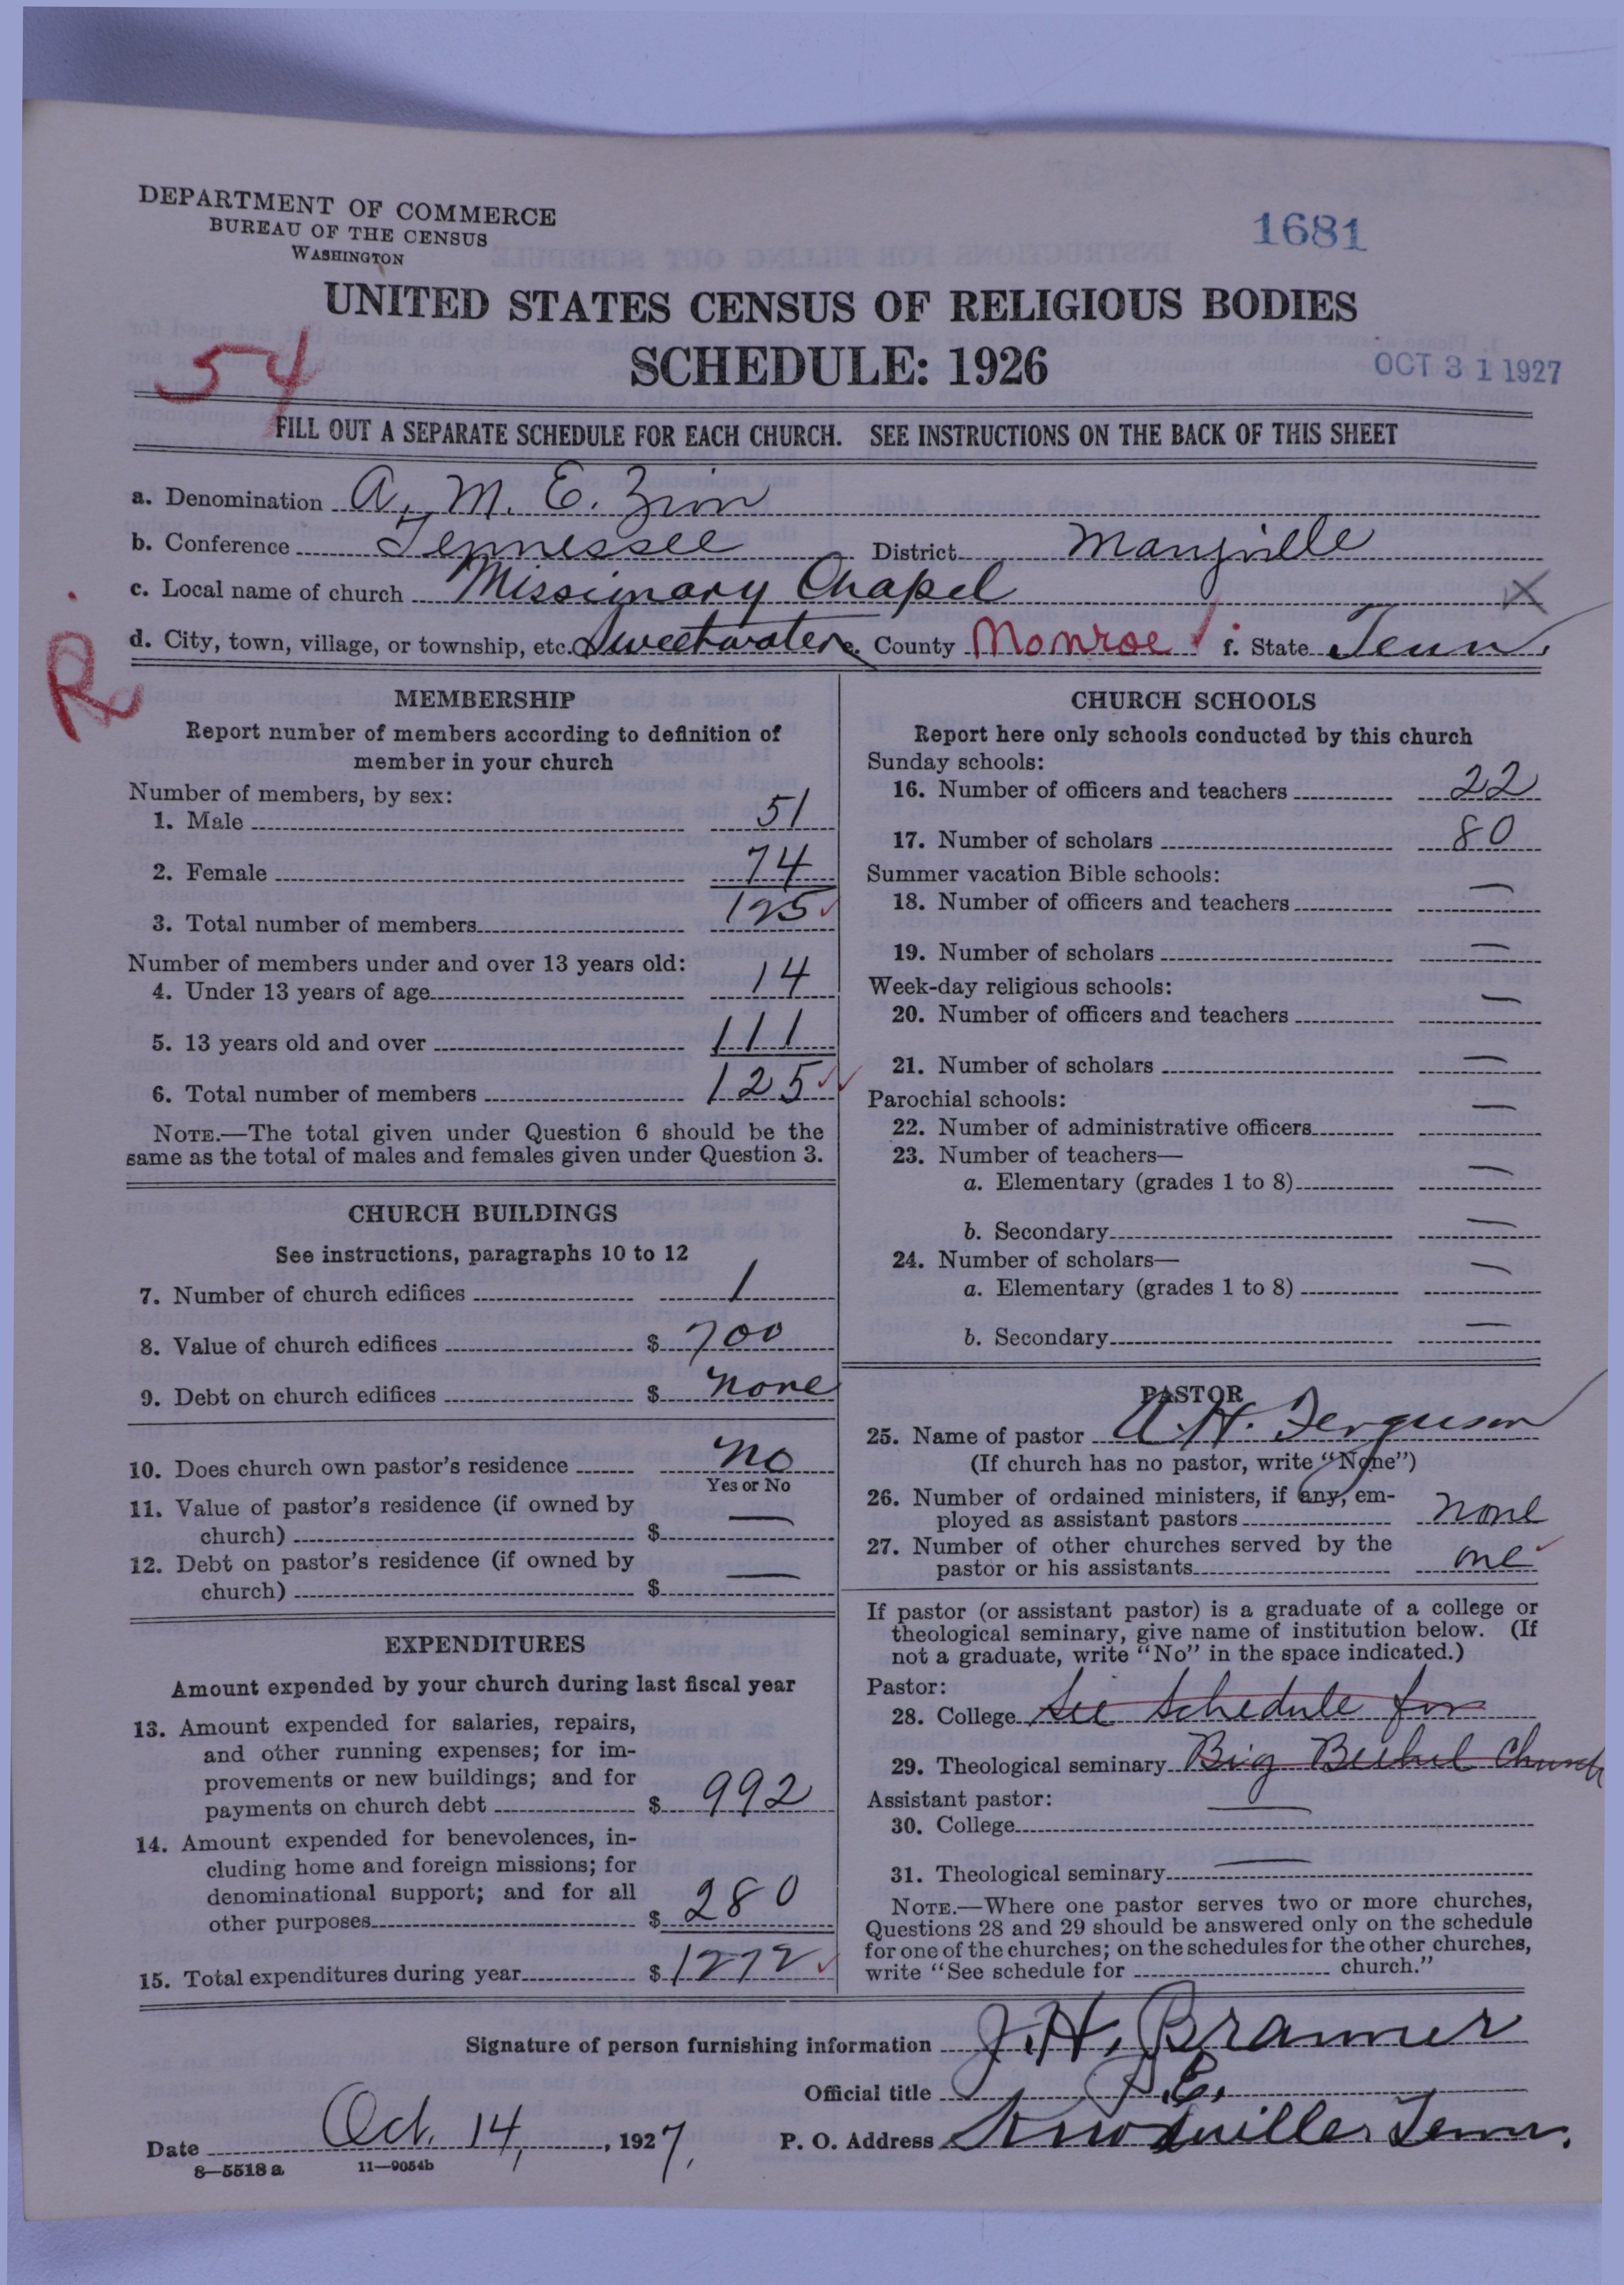 DEPARTMENT OF COMMERCE
BUREAU OF THE CENSUS
WASHINGTON
1681
UNITED STATES CENSUS OF RELIGIOUS BODIES
SCHEDULE: 1926
OCT 31 1927
54
FILL OUT A SEPARATE SCHEDULE FOR EACH CHURCH. SEE INSTRUCTIONS ON THE BACK OF THIS SHEET
a. Denomination A. M. E. Zion
b. Conference Tennessee District Maryville
c. Local name of church Missionary Chapel X
d. City, town, village, or township, etc. Sweetwater e. County Monroe ✓ f. State Tenn.
MEMBERSHIP
Report number of members according to definition of
member in your church
Number of members, by sex:
1. Male 51
2. Female 74
3. Total number of members 125 ✓
Number of members under and over 13 years old:
4. Under 13 years of age 14
5. 13 years old and over 111
6. Total number of members 125 ✓✓
NOTE.—The total given under Question 6 should be the
same as the total of males and females given under Question 3.
CHURCH BUILDINGS
See instructions, paragraphs 10 to 12
7. Number of church edifices 1
8. Value of church edifices $ 700
9. Debt on church edifices $ none
10. Does church own pastor's residence no
Yes or No
11. Value of pastor's residence (if owned by
church) $ —
12. Debt on pastor's residence (if owned by
church) $ —
EXPENDITURES
Amount expended by your church during last fiscal year
13. Amount expended for salaries, repairs,
and other running expenses; for im-
provements or new buildings; and for
payments on church debt $ 992
14. Amount expended for benevolences, in-
cluding home and foreign missions; for
denominational support; and for all
other purposes $ 280
15. Total expenditures during year $ 1272 ✓
CHURCH SCHOOLS
Report here only schools conducted by this church
Sunday schools:
16. Number of officers and teachers 22
17. Number of scholars 80
Summer vacation Bible schools:
18. Number of officers and teachers —
19. Number of scholars —
Week-day religious schools:
20. Number of officers and teachers —
21. Number of scholars —
Parochial schools:
22. Number of administrative officers —
23. Number of teachers—
a. Elementary (grades 1 to 8) —
b. Secondary —
24. Number of scholars—
a. Elementary (grades 1 to 8) —
b. Secondary —
PASTOR
25. Name of pastor A. H. Ferguson
(If church has no pastor, write "None")
26. Number of ordained ministers, if any, em-
ployed as assistant pastors none
27. Number of other churches served by the
pastor or his assistants one ✓
If pastor (or assistant pastor) is a graduate of a college or
theological seminary, give name of institution below. (If
not a graduate, write "No" in the space indicated.)
Pastor:
28. College See Schedule for
29. Theological seminary Big Bethel Church
Assistant pastor:
30. College —
31. Theological seminary —
NOTE.—Where one pastor serves two or more churches,
Questions 28 and 29 should be answered only on the schedule
for one of the churches; on the schedules for the other churches,
write "See schedule for church."
Signature of person furnishing information J. H. Bramer
Official title P. E.
Date Oct. 14, 1927. P. O. Address Knoxville, Tenn.
8—5518 a 11—9054b